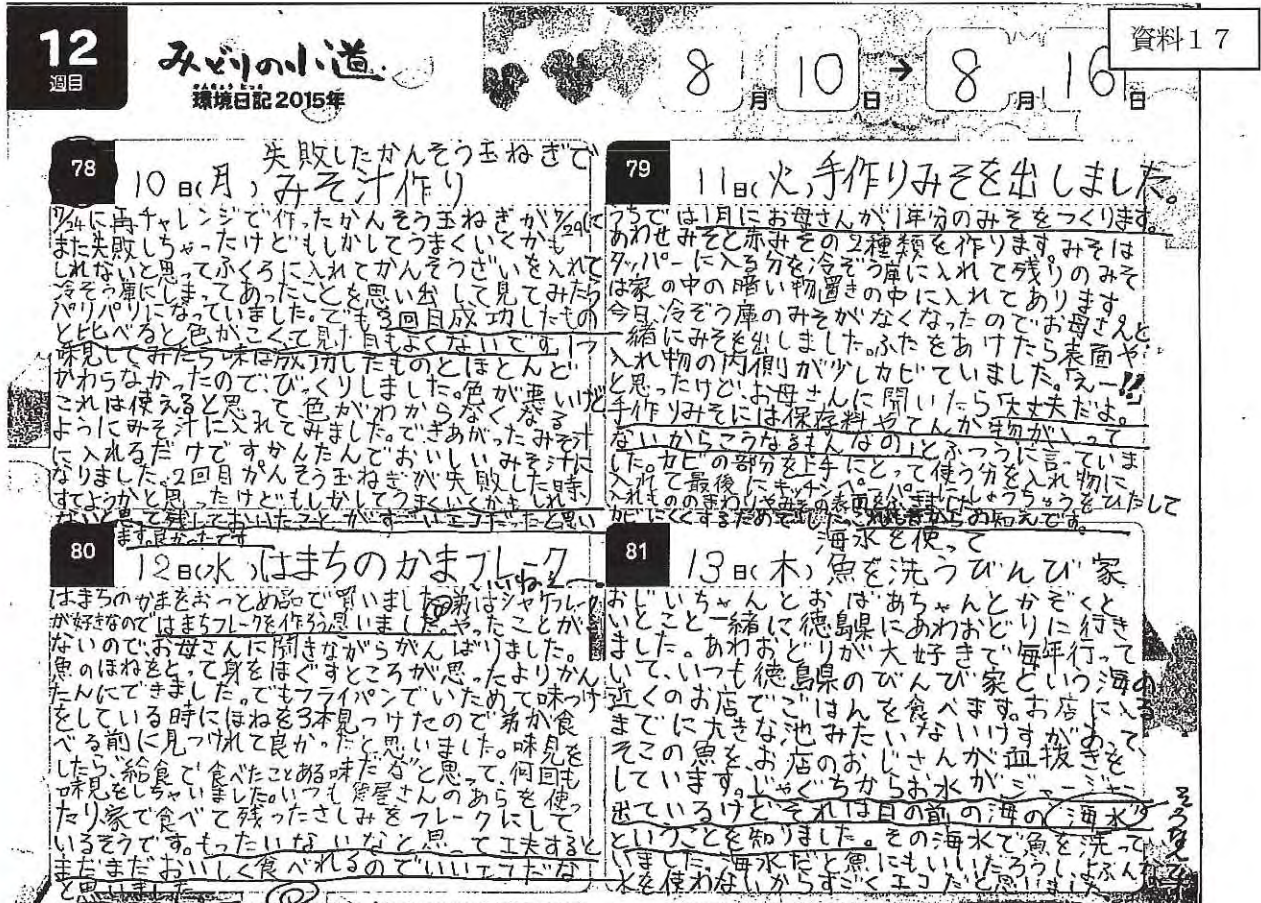 資料17
12
週目
みどりの小道
かんきょう にっき
環境日記2015年
8月10日→8月16日
78
失敗したかんそう玉ねぎで
10日(月)みそ汁作り
7/24に再チャレンジで作ったかんそう玉ねぎが7/29に
また失敗しちゃったけどもしかしてうまくいくかも
しれないと思ってふくろに入れてかんそうざいを入れて
冷ぞう庫にしまってあったことを思い出して見てみたら
パリパリになっていました。でも3回目成功したもの
と比べると色がこくて見た目もよくないです。1つ
味見してみたら味は成功したものとほとんど
かわらなかったので、びっくりしました。色が悪いけど
これは使えると思って色がわからなくなる
ようにみそ汁に入れてみました。できあがったみそ汁
に入れるだけですかんたんでおいしいみそ汁に
なりました。2回目かんそう玉ねぎが失敗した時、
すてようかと思ったけどもしかしてうまくいくかもしれ
ないと思って残しておいたことがすごいエコだったと思い
ます。良かったです
79
11日(火)手作りみそを出しました。
うちでは1月にお母さんが1年分のみそをつくります。
あわせみそと赤みその2種類を作ります。みそは
タッパーに入る分を冷ぞう庫に入れて残りのみそ
は家の中の暗い物置きの中に入れてあります。
今日、冷ぞう庫のみそがなくなったのでお母さんと
一緒にみそを出しました。ふたをあけたら表面や
入れ物の内側が少しカビていました。「えー!!
と思ったけどお母さんに聞いたら「大丈夫だよ。
手作りみそには保存料やてんか物が入って
ないからこうなるもんなの」とふつうに言っていま
した。カビの部分を上手にとって使う分を入れ物に
入れて最後にキッチンペーパーにしょうちゅうをひたして
入れもののまわりやみその表面を
カビにくくするため
80
12日(水)はまちのかまフレーク
いいねぇー
はまちのかまをおつとめ品で買いました。弟はシャケフレーク
が好きなのではまちフレークを作ろう思いました。やったことが
ないので、お母さんに聞きながらがんばりました。
魚のほねをとって身をほぐすところが思ったよりかん
たんにできました。でもフライパンでいためて味つけ
をしている時にほねを3本見つけたので弟が食
べる前に見つけれて良かったと思いました。味見を
したら、給食で食べたことある味だなと思って、何回も
味見をしちゃいました。いつも魚屋さんのあらを使っ
たり、家で食べて残ったさしみをフレークにして
いるそうです。もったいないなと思って工夫すると
まだまだおいしく食べれるのでいいエコだな
と思いました
81
海水を使って
13日(木)魚を洗うびんび家
おじいちゃんとおばあちゃんとかぞくと
いとこと一緒に徳島県にあわおどりに行き
ました。あわおどりが大好きで毎年行って
いて、いつも徳島県のびんび家という海の
近くのお店でごはんを食べます。お店に入る
までに大きな池みたいないけすがあって、
そこの魚を、お店のおじさんが血抜きを
しています。じゃぐちからお水がジャージャー
出ているけどそれは目の前の海の海水だ
ということを知りました。その海水で魚を洗って
いました。海水だと魚にもいいだろうし、よぶんな
水を使わないからすごくエコだと思いました。
そうなんだ